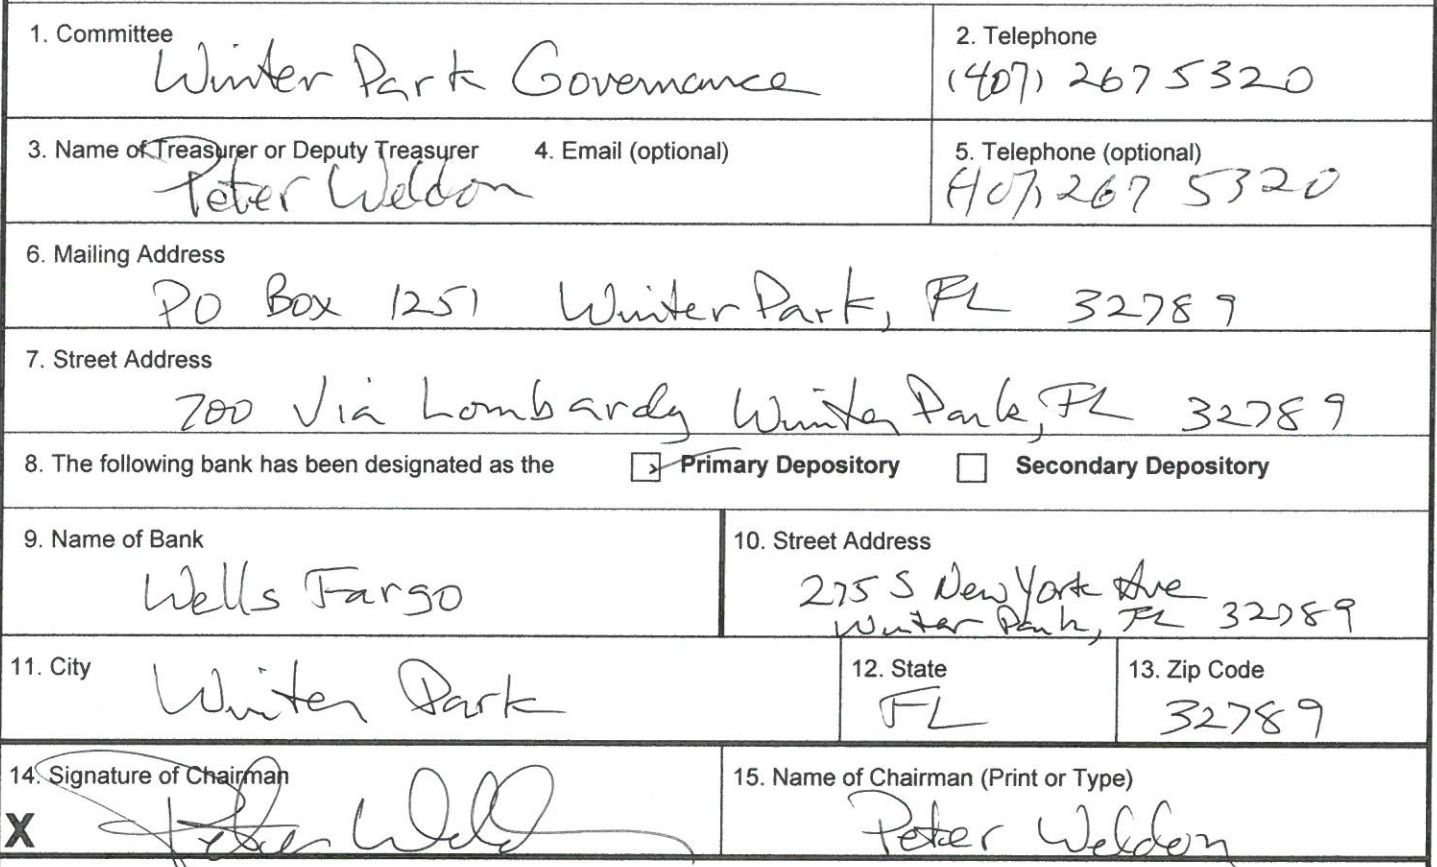 1. Committee
Winter Park Governance
2. Telephone
(407) 267 5320
3. Name of Treasurer or Deputy Treasurer
Peter Weldon
4. Email (optional)
5. Telephone (optional)
(407) 267 5320
6. Mailing Address
PO Box 1251 Winter Park, FL 32789
7. Street Address
700 Via Lombardy Winter Park, FL 32789
8. The following bank has been designated as the Primary Depository Secondary Depository
9. Name of Bank
Wells Fargo
10. Street Address
275 S New York Ave
Winter Park, FL 32789
11. City
Winter Park
12. State
FL
13. Zip Code
32789
14. Signature of Chairman
X Peter Weldon
15. Name of Chairman (Print or Type)
Peter Weldon